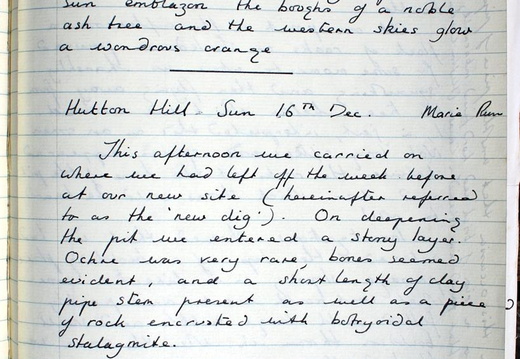 sun emblazon the boughs of a noble
ash tree and the western skies glow
a wondrous orange
Hutton Hill - Sun 16TH Dec. Marie Run
This afternoon we carried on
where we had left off the week before
at our new site (hereinafter referred
to as the 'new dig'). On deepening
the pit we entered a stony layer.
Ochre was very rare, bones seemed
evident, and a short length of clay
pipe stem present as well as a piece
of rock encrusted with botryoidal
stalagmite.